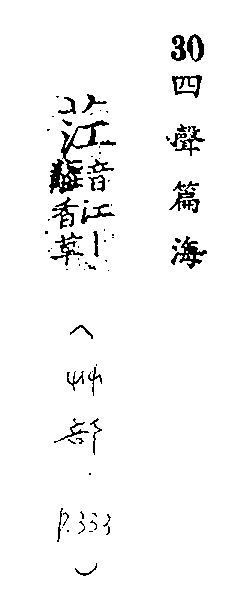 30四聲篇海
茳音江丨香草（艸部．P.333）